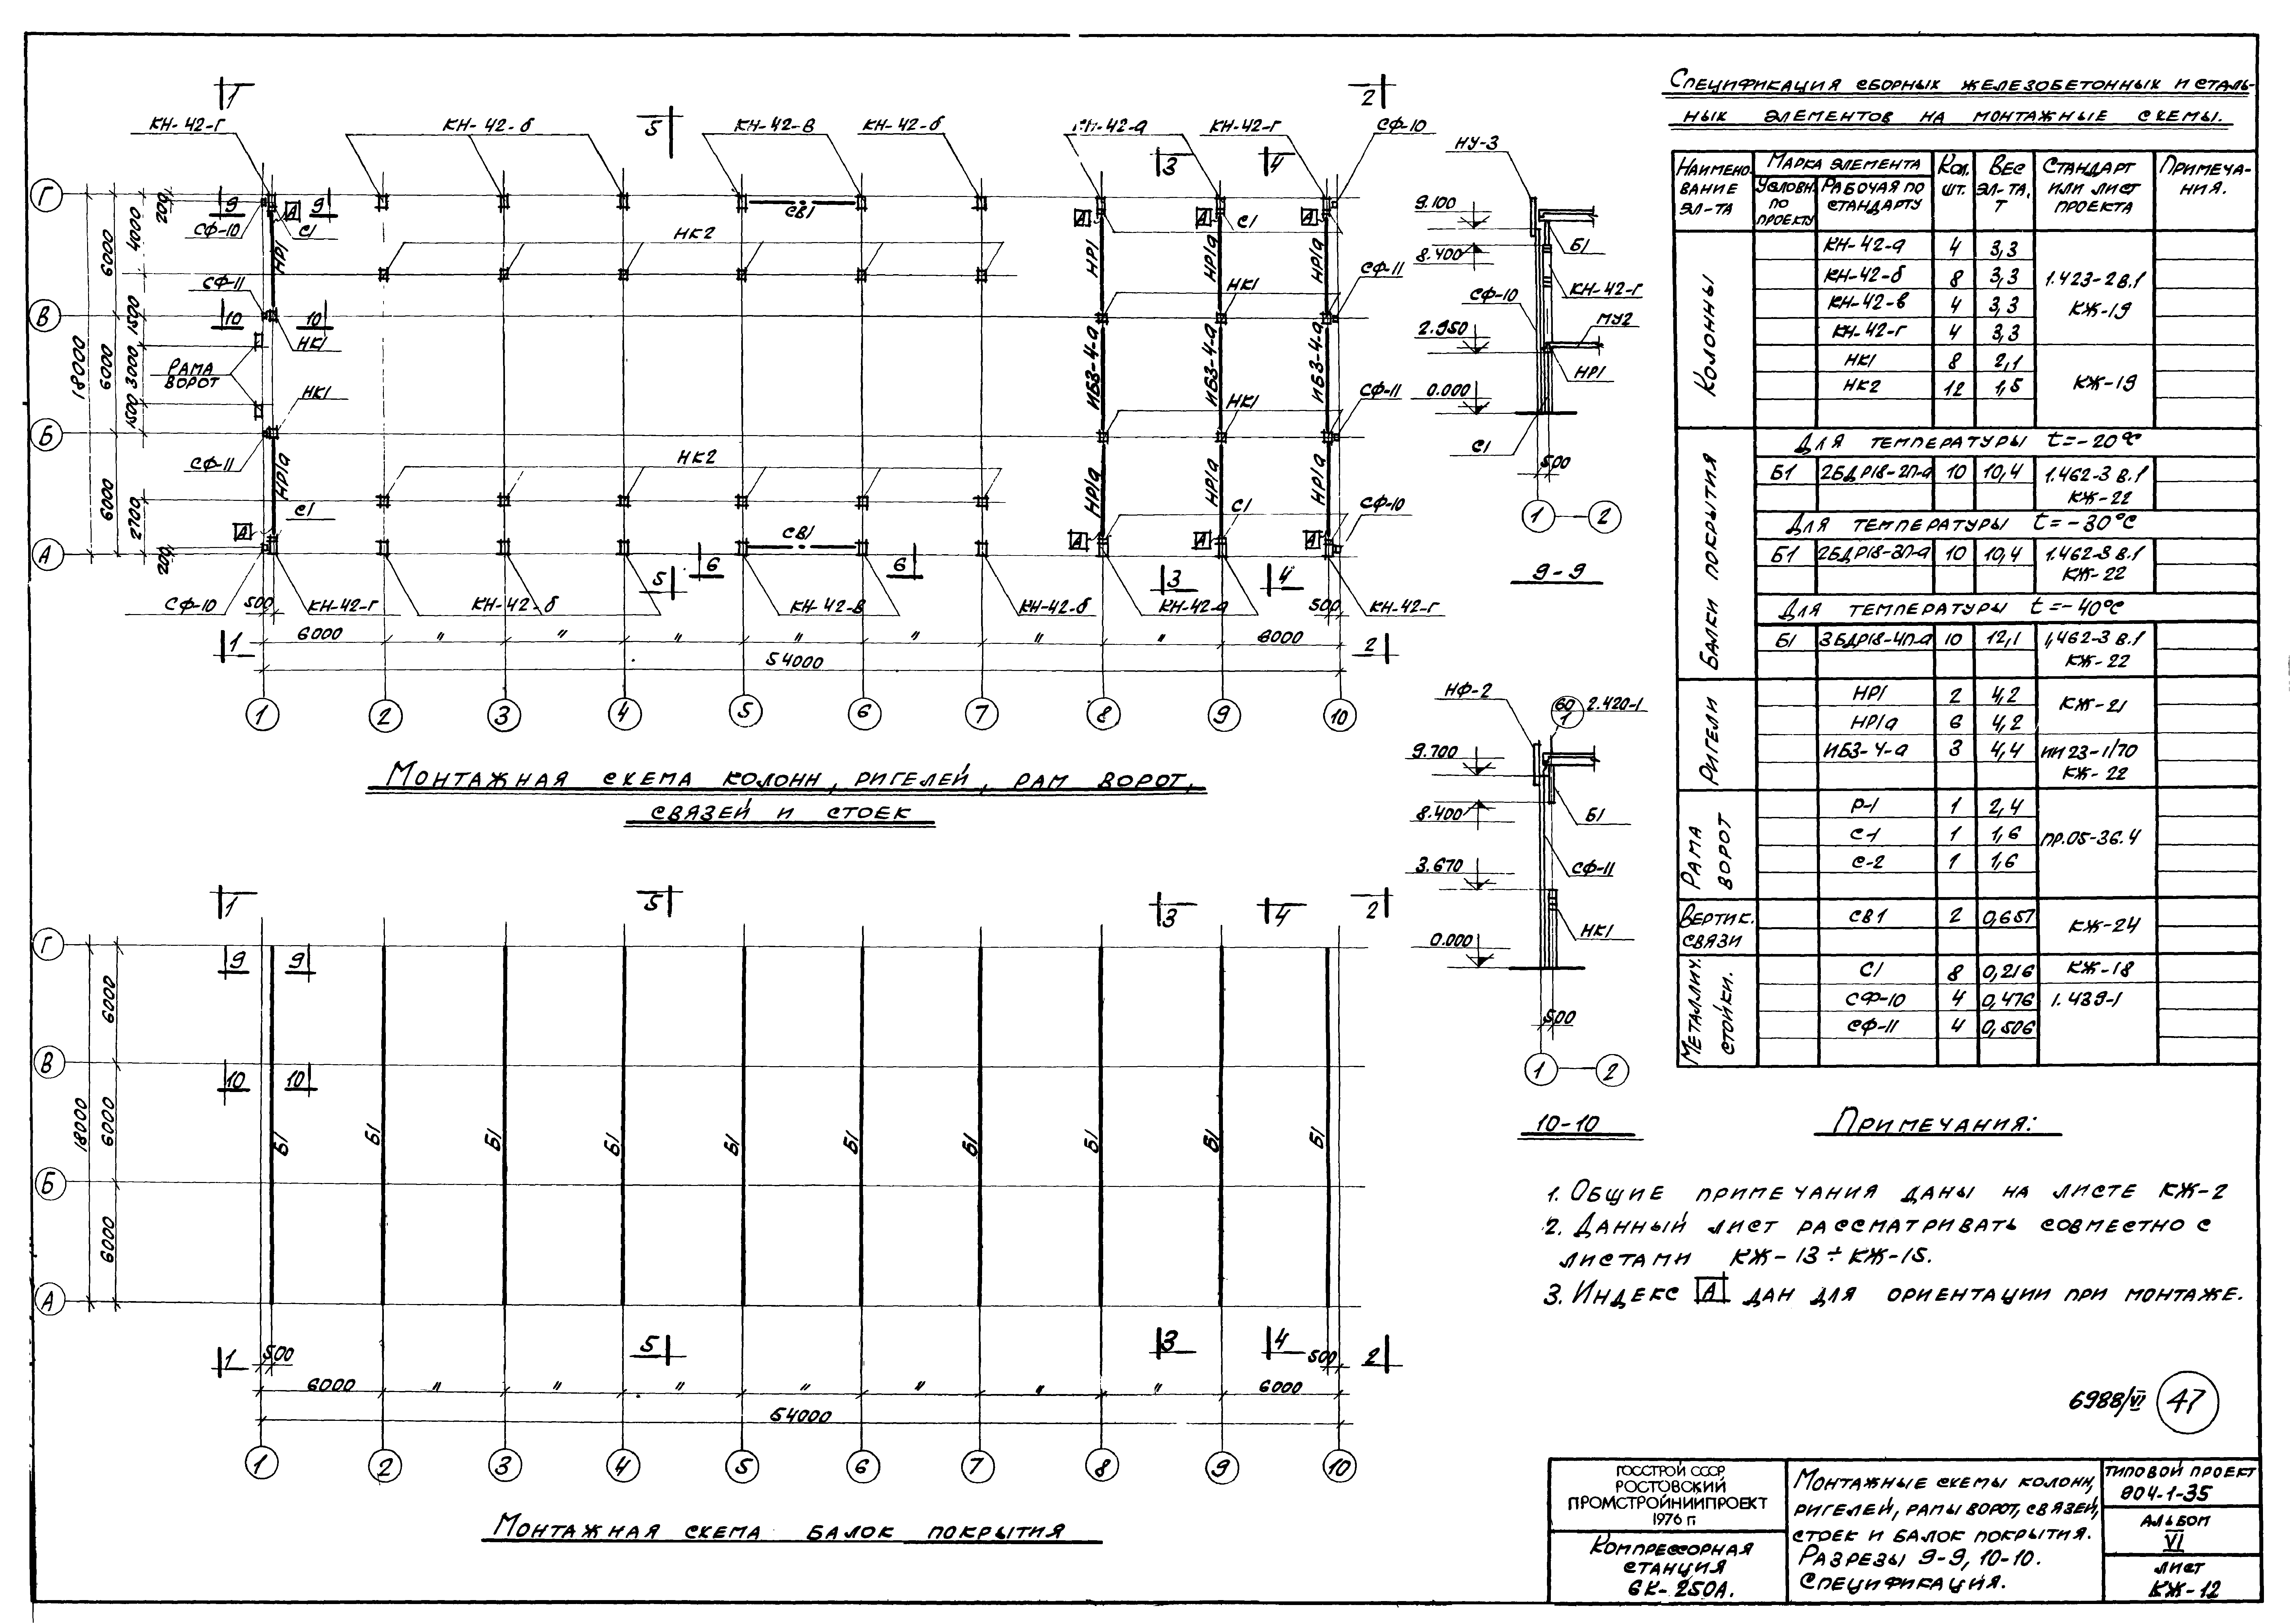 1
2
КН-42-г
КН-42-б
5
КН-42-в
КН-42-б
КН-42-а
КН-42-г
СФ-10
3
4
Г
9
А
9
СВ1
А
А
А
СФ-10
С1
С1
200
4000
6000
НР1
НК2
НР1
НР1а
НР1а
СФ-11
СФ-11
НК1
В
10
10
НК1
1500
18000
6000
3000
РАМА
ВОРОТ
ИБ3-4-а
ИБ3-4-а
ИБ3-4-а
НК1
СФ-11
НК1
1500
Б
СФ-11
НК2
НР1а
НР1а
НР1а
НР1а
6000
2700
С1
С1
СФ-10
А
СВ1
А
А
А
А
200
6
6
5
3
4
СФ-10
500
КН-42-г
КН-42-б
КН-42-в
КН-42-б
КН-42-а
500
КН-42-г
1
6000
"
"
"
"
"
"
"
6000
2
54000
1
2
3
4
5
6
7
8
9
10
МОНТАЖНАЯ СХЕМА КОЛОНН, РИГЕЛЕЙ, РАМ ВОРОТ,
СВЯЗЕЙ И СТОЕК
1
5
3
4
2
Г
9
9
6000
В
10
10
18000
6000
Б1
Б1
Б1
Б1
Б1
Б1
Б1
Б1
Б1
Б1
Б
6000
А
1
500
5
3
4
500
2
6000
"
"
"
"
"
"
"
6000
54000
1
2
3
4
5
6
7
8
9
10
МОНТАЖНАЯ СХЕМА БАЛОК ПОКРЫТИЯ
НУ-3
9.100
8.400
Б1
СФ-10
КН-42-г
МУ2
2.950
НР1
0.000
С1
500
1
2
9-9
НФ-2
60
1
2.420-1
9.700
8.400
Б1
3.670
СФ-11
0.000
НК1
500
1
2
10-10
СПЕЦИФИКАЦИЯ СБОРНЫХ ЖЕЛЕЗОБЕТОННЫХ И СТАЛЬ-
НЫХ ЭЛЕМЕНТОВ НА МОНТАЖНЫЕ СХЕМЫ.
НАИМЕНО-
ВАНИЕ
ЭЛ-ТА
МАРКА ЭЛЕМЕНТА
УСЛОВН.
ПО
ПРОЕКТУ
РАБОЧАЯ ПО
СТАНДАРТУ
КОЛ.
ШТ.
ВЕС
ЭЛ-ТА,
Т
СТАНДАРТ
ИЛИ ЛИСТ
ПРОЕКТА
ПРИМЕЧА-
НИЯ.
КОЛОННЫ
КН-42-а 4 3,3
КН-42-б 8 3,3 1.423-2 в.1
КН-42-в 4 3,3 КЖ-19
КН-42-г 4 3,3
НК1 8 2,1
НК2 12 1,5 КЖ-19
БАЛКИ ПОКРЫТИЯ
ДЛЯ ТЕМПЕРАТУРЫ t=-20°С
Б1 2БДР18-2П-а 10 10,4 1.462-3 в.1
КЖ-22
ДЛЯ ТЕМПЕРАТУРЫ t=-30°С
Б1 2БДР18-3П-а 10 10,4 1.462-3 в.1
КЖ-22
ДЛЯ ТЕМПЕРАТУРЫ t=-40°С
Б1 3БДР18-4П-а 10 12,1 1,462-3 в.1
КЖ-22
РИГЕЛИ
НР1 2 4,2 КЖ-21
НР1а 6 4,2
ИБ3-4-а 3 4,4 ИИ23-1/70
КЖ-22
РАМА
ВОРОТ
Р-1 1 2,4
С-1 1 1,6 ПР.05-36.4
С-2 1 1,6
ВЕРТИК.
СВЯЗИ
СВ1 2 0,657 КЖ-24
МЕТАЛЛИЧ.
СТОЙКИ.
С1 8 0,216 КЖ-18
СФ-10 4 0,476 1.439-1
СФ-11 4 0,506
ПРИМЕЧАНИЯ:
1. ОБЩИЕ ПРИМЕЧАНИЯ ДАНЫ НА ЛИСТЕ КЖ-2
2. ДАННЫЙ ЛИСТ РАССМАТРИВАТЬ СОВМЕСТНО С
ЛИСТАМИ КЖ-13÷КЖ-15.
3. ИНДЕКС А ДАН ДЛЯ ОРИЕНТАЦИИ ПРИ МОНТАЖЕ.
6988/VI 47
ГОССТРОЙ СССР
РОСТОВСКИЙ
ПРОМСТРОЙНИИПРОЕКТ
1976 г.
КОМПРЕССОРНАЯ
СТАНЦИЯ
6К-250А.
МОНТАЖНЫЕ СХЕМЫ КОЛОНН,
РИГЕЛЕЙ, РАМЫ ВОРОТ, СВЯЗЕЙ,
СТОЕК И БАЛОК ПОКРЫТИЯ.
РАЗРЕЗЫ 9-9, 10-10.
СПЕЦИФИКАЦИЯ.
ТИПОВОЙ ПРОЕКТ
904-1-35
АЛЬБОМ
VI
ЛИСТ
КЖ-12